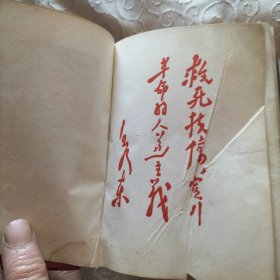 救死扶伤，实行
革命的人道主义
毛泽东